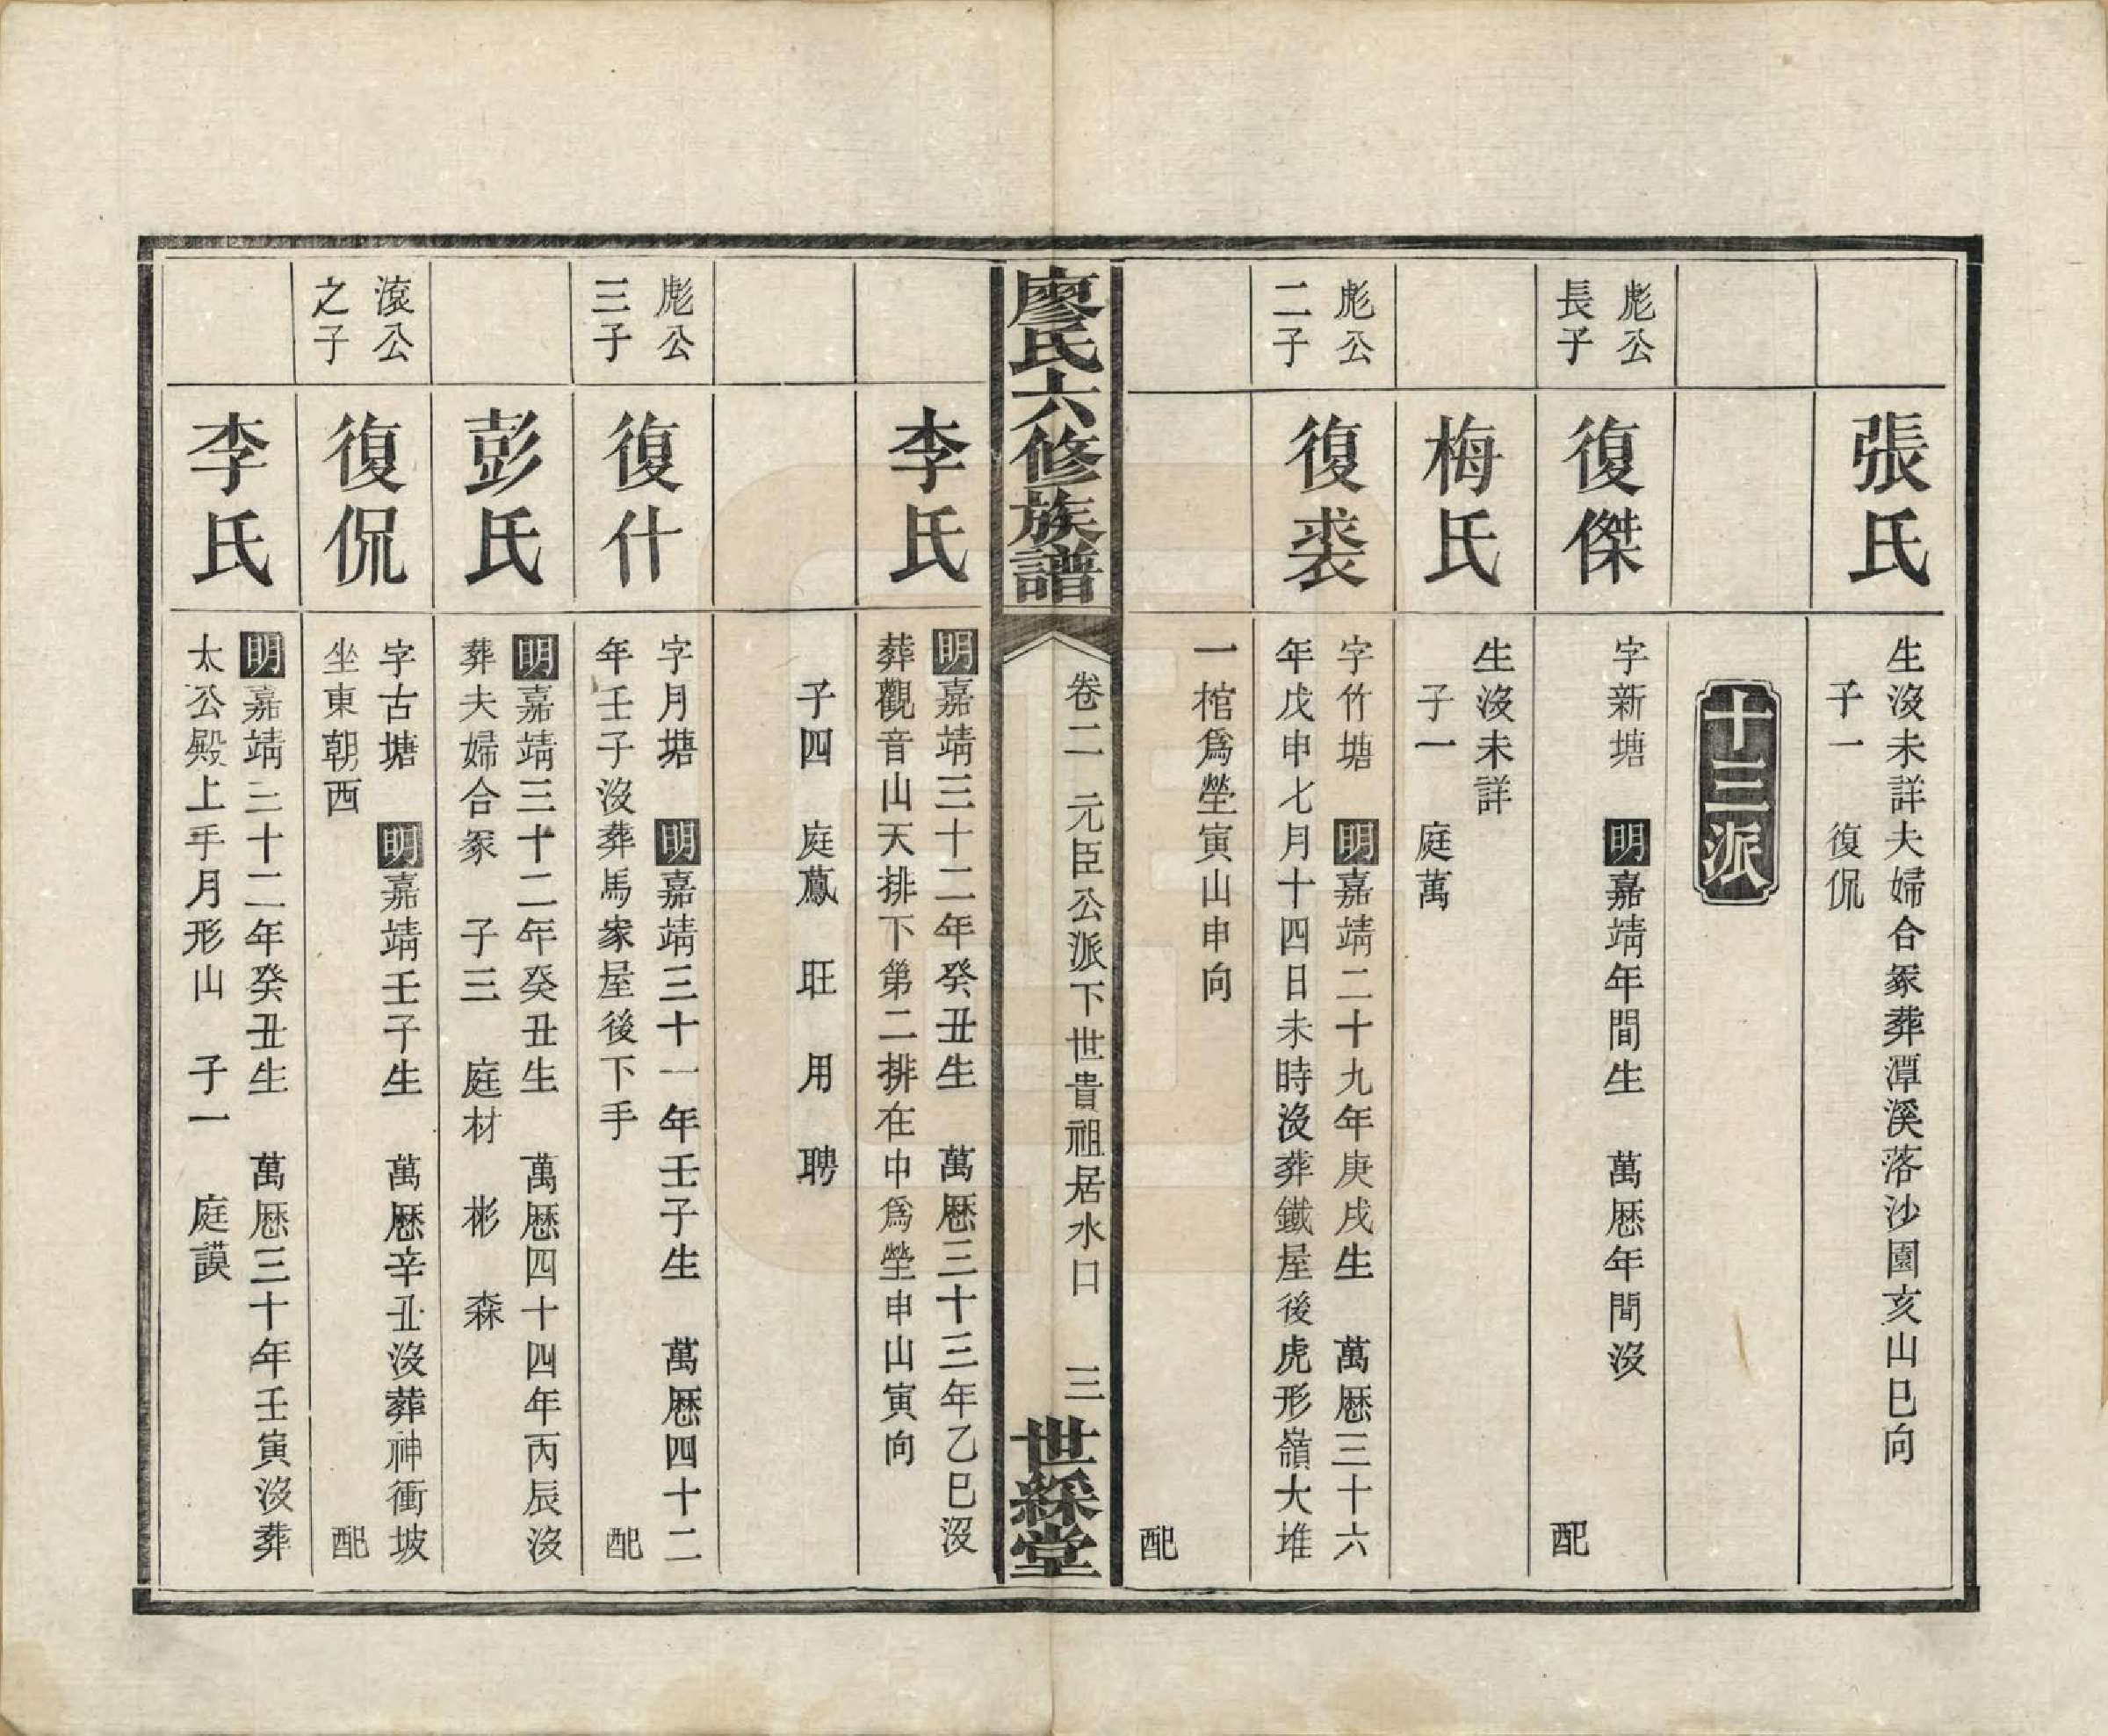 張氏
生沒未詳夫婦合冢葬潭溪落沙園亥山巳向
子一 復侃
十三派
彪公
長子
復傑
字新塘 明嘉靖年間生 萬厯年間沒
配
梅氏
生沒未詳
子一 庭萬
彪公
二子
復裘
字竹塘 明嘉靖二十九年庚戌生 萬厯三十六
年戊申七月十四日未時沒葬鐵屋後虎形嶺大堆
一棺爲塋寅山申向
配
廖氏六修族譜
卷二 元臣公派下世貴祖居水口 三
世綵堂
李氏
明嘉靖三十二年癸丑生 萬厯三十三年乙巳沒
葬觀音山天排下第二排在中爲塋申山寅向
子四 庭鳳 旺 用 聘
彪公
三子
復什
字月塘 明嘉靖三十一年壬子生 萬厯四十二
年壬子沒葬馬家屋後下手
配
彭氏
明嘉靖三十二年癸丑生 萬厯四十四年丙辰沒
葬夫婦合冢 子三 庭材 彬 森
滾公
之子
復侃
字古塘 明嘉靖壬子生 萬厯辛丑沒葬神衝坡
坐東朝西
配
李氏
明嘉靖三十二年癸丑生 萬厯三十年壬寅沒葬
太公殿上手月形山 子一 庭謨